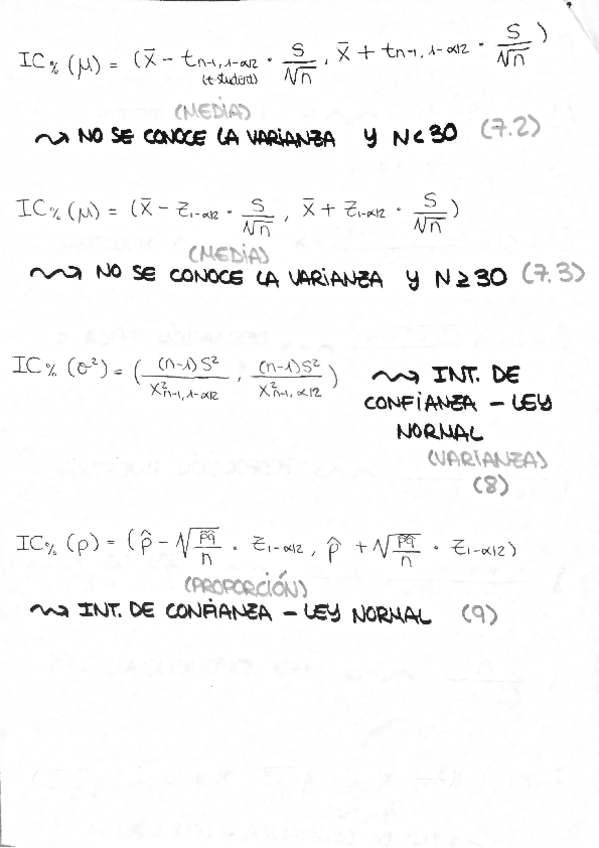 IC% (μ) = (x̄ − t n-1, 1-α/2 · S/√n , x̄ + t n-1, 1-α/2 · S/√n )
(t-student)
(MEDIA)
⇝ NO SE CONOCE LA VARIANZA Y N < 30 (7.2)
IC% (μ) = (x̄ − Z 1-α/2 · S/√n , x̄ + Z 1-α/2 · S/√n )
(MEDIA)
⇝ NO SE CONOCE LA VARIANZA Y N ≥ 30 (7.3)
IC% (σ²) = ( (n-1)S² / X² n-1, 1-α/2 , (n-1)S² / X² n-1, α/2 ) ⇝ INT. DE
CONFIANZA – LEY
NORMAL
(VARIANZA)
(8)
IC% (p) = (p̂ − √(p̂q̂/n) · Z 1-α/2 , p̂ + √(p̂q̂/n) · Z 1-α/2)
(PROPORCIÓN)
⇝ INT. DE CONFIANZA – LEY NORMAL (9)